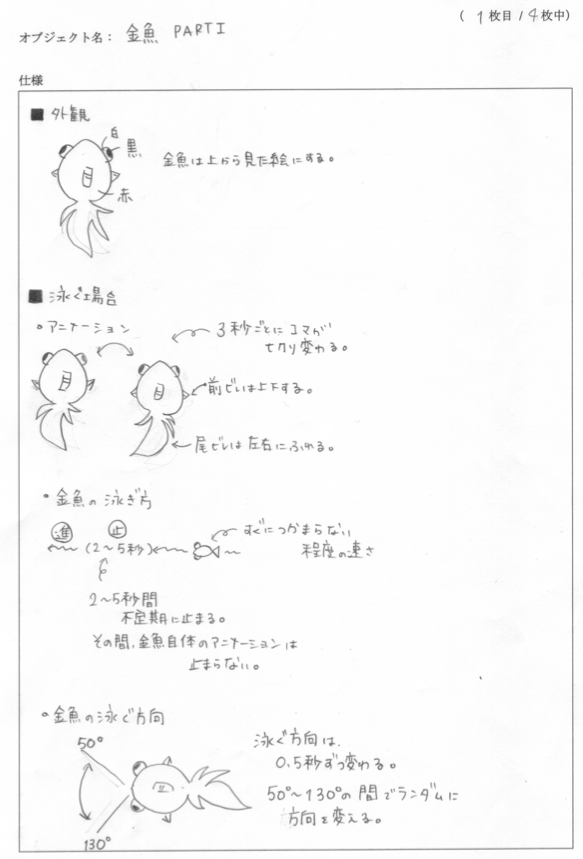 ( 1 枚目 / 4 枚中)
オブジェクト名： 金魚 PARTⅠ
仕様
■ 外観
白
黒
赤
月
金魚は上から見た絵にする。
■ 泳ぐ場合
○アニメーション
3秒ごとにコマが
切り変わる。
月
月
前ビレは上下する。
尾ビレは左右にふれる。
○金魚の泳ぎ方
進 止
(2〜5秒)
すぐにつかまらない
程度の速さ
2〜5秒間
不定期に止まる。
その間、金魚自体のアニメーションは
止まらない。
○金魚の泳ぐ方向
50°
130°
泳ぐ方向は、
0.5秒ずつ変わる。
50°〜130°の間でランダムに
方向を変える。